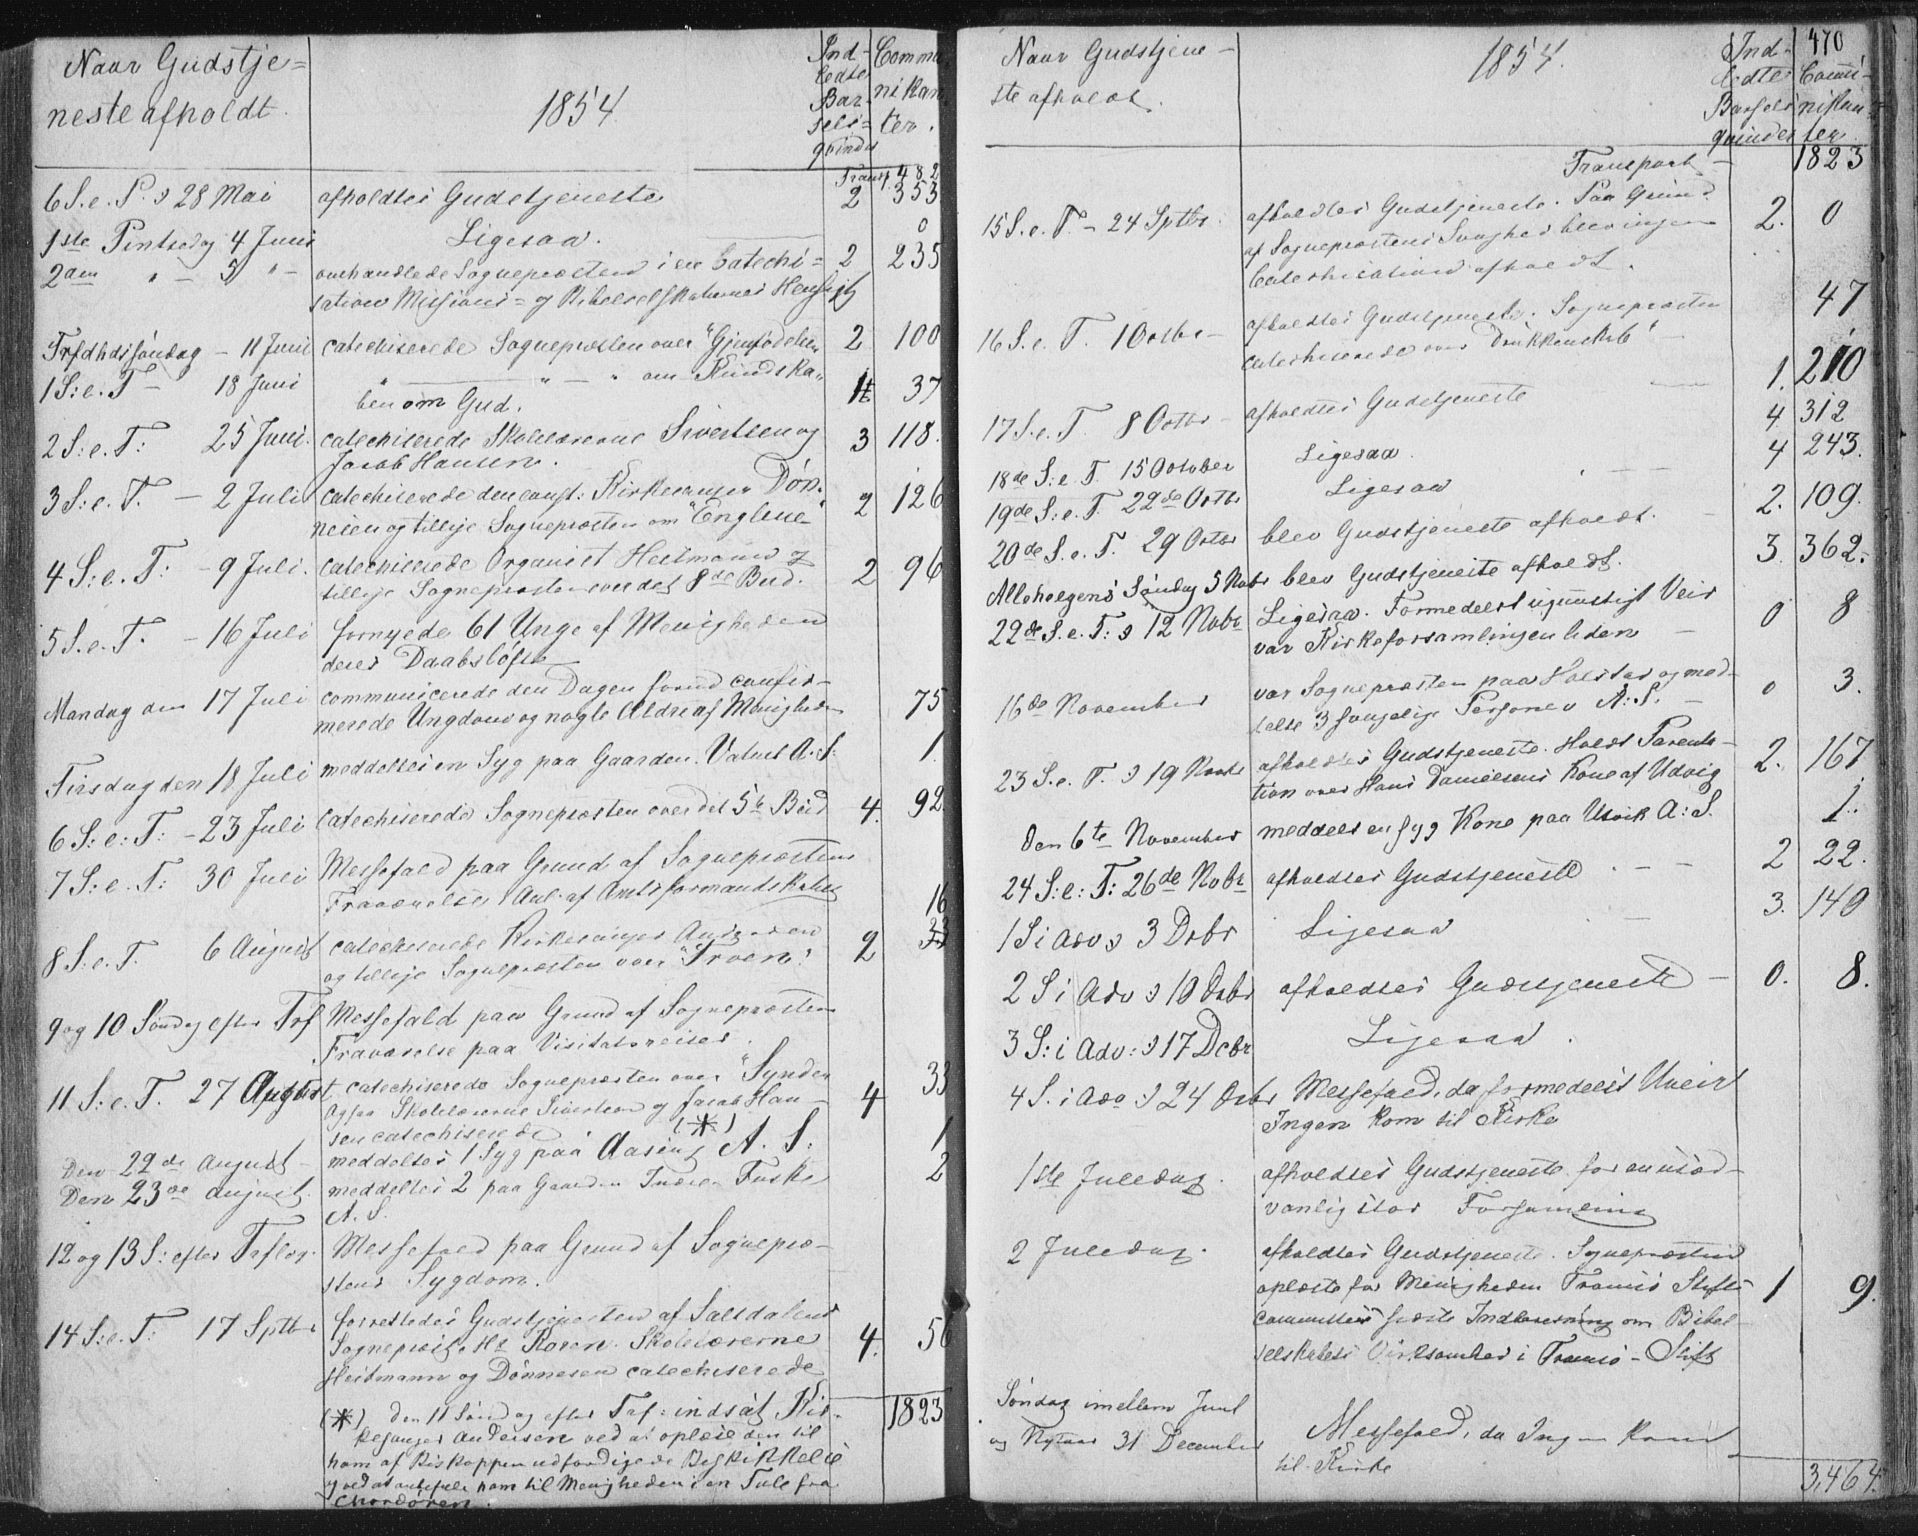 Naar Gudstje=
neste afholdt.
1854
Ind-
ledte
Bar-
sels=
qvinder
Commu
nikan
ter.
Transp. 482
6 S. e. P. d 28 Mai afholdtes Gudstjeneste 2 353
1ste Pintsedag 4 Juni Ligesaa. 0
2den " - 5 " - omhandlede Sognepræsten i en Catechi= 2 235
sation Missions= og Bibelselskabernes Hensigt
Trefdhds söndag - 11 Juni catechiserede Sognepræsten over "Gjenfödelsen 2 100
1 S: e. T - 18 Juni " " - " om Kundska- 1 37
ben om Gud.
2 S: e. T: 25 Juni. catechiserede Skolelærerne Sivertsen og 3 118.
Jacob Hansen.
3 S: e. T. - 2 Juli catechiserede den const: Kirkesanger Døn- 2 126
nesen og tillige Sognepræsten om "Englene"
4 S: e. T: - 9 Juli. catechiserede Organist Heitmann og 2 96
tillige Sognepræsten over det 8de Bud.
5 S. e. T. - 16 Juli fornyede 61 Unge af Menigheden
deres Daabslöfte
Mandag den 17 Juli communicerede den Dagen forud confir-
merede Ungdom og nogle Ældre af Menigheden 75
Tirsdag den 18 Juli meddeltes en Syg paa Gaarden Valnes A. S. 1.
6 S: e: T: - 23 Juli Catechiserede Sognepræsten over det 5te Bud 4. 92
7 S: e. T: 30 Juli Messefald paa Grund af Sognepræstens
Fraværelse i Anl. af Amtsformandskabet
16
8 S. e. T. 6 August catechiserede Kirkesanger Andersen 2 33
og tillige Sognepræsten over "Troen".
9 og 10 Söndag efter Tref Messefald paa Grund af Sognepræstens
Fraværelse paa Visitatsreiser.
11 S: e. T. 27 August catechiserede Sognepræsten over "Synden 4 33
Ogsaa Skolelærerne Sivertsen og Jacob Han-
sen catechiserede (*)
Den 22de August - meddeltes 1 Syg paa Aasen A. S: 1
Den 23de August. meddeltes 2 paa Gaarden Indre Fuske 2
A. S.
12 og 13 S: efter Treflog. Messefald paa Grund af Sognepræ-
stens Sygdom.
14 S: e. T: 17 Sptbr forrettedes Gudstjenesten af Saltdalens
Sognepræst, Hr Koren. Skolelærerne 4. 50
Heitmann og Dönnesen catechiserede
(*) den 11 Sönd ag efter Tref: indsat Kir- 1823
kesanger Andersen ved at oplæse den til
ham af Biskoppen udfærdigede Beskikkelse
og ved at anbefale ham til Menigheden i en Tale fra
Chordören.
470
Naar Gudstjene-
ste afholdt.
1854.
Ind-
ledte
Barsels
qvinder
Commu-
nikan-
ter
Transport - 1823
15 S. e. T. - 24 Sptbr. afholdtes Gudstjeneste. Paa Grund 2. 0
af Sognepræstens Svaghed blev ingen
Catechisation afholdt.
47
16 S. e. T. 1 Octbr - afholdtes Gudstjeneste. Sognepræsten
catechiserede over "Drukkenskab" -
1. 210
17 S. e. T. 8 Octbr - afholdtes Gudstjeneste 4 312
18de S: e. T. 15 October Ligesaa. 4 243.
19de S: e. T. 22de Octbr Ligesaa 2. 109.
20de S. e. T. 29 Octbr blev Gudstjeneste afholdt. 3. 362.
Allehelgens Söndag 5 Nobr blev Gudstjeneste afholdt.
22de S. e. T: d 12 Nobr Ligesaa. Formedelst ugunstigt Veir 0 8
var Kirkeforsamlingen liden -
16de November var Sognepræsten paa Holstad og med- 0 3.
delte 3 svagelige Personer A: S. -
23 S. e. T. d 19 Novbr afholdtes Gudstjeneste. Holdt Parenta- 2. 167
tion over Hans Danielsens Kone af Udvig
den 6te November meddelt en syg Kone paa Utvik A: S. 1.
24 S: e: T: 26de Nobr afholdtes Gudstjeneste - - 2 22.
1 S i Adv d 3 Decbr Ligesaa 3. 140
2 S i Adv d 10 Decbr afholdtes Gudstjeneste - 0. 8.
3 S: i Adv: d 17 Dcbr Ligesaa.
4 S. i Adv d 24 Decbr Messefald, da formedelst Uveir
Ingen kom til Kirke
1ste Juledag. afholdtes Gudstjeneste for en usæd-
vanlig stor Forsamling
2 Juledag. afholdtes Gudstjeneste. Sognepræsten
oplæste for Menigheden Tromsö Stifts 1 9.
committees første Indberetning om Bibel-
selskabets Virksomhed i Tromsö-Stift
Søndag imellem Juul
og Nytaar 31 December Messefald, da Ingen kom
til Kirke
3,464.